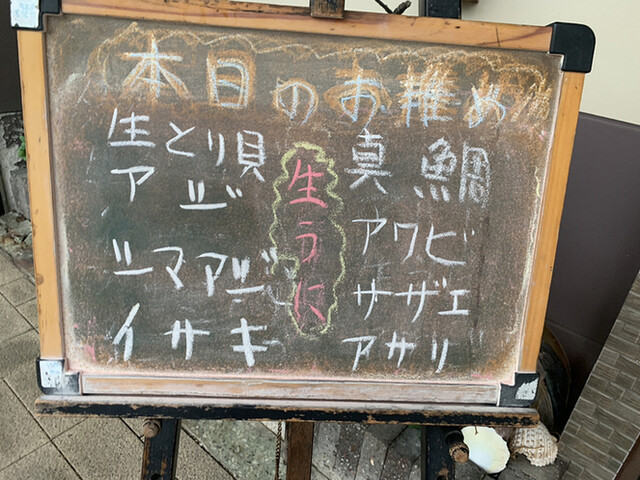 本日のお推め
生とり貝
アジ
シマアジ
イサキ
生うに
真鯛
アワビ
サザエ
アサリ